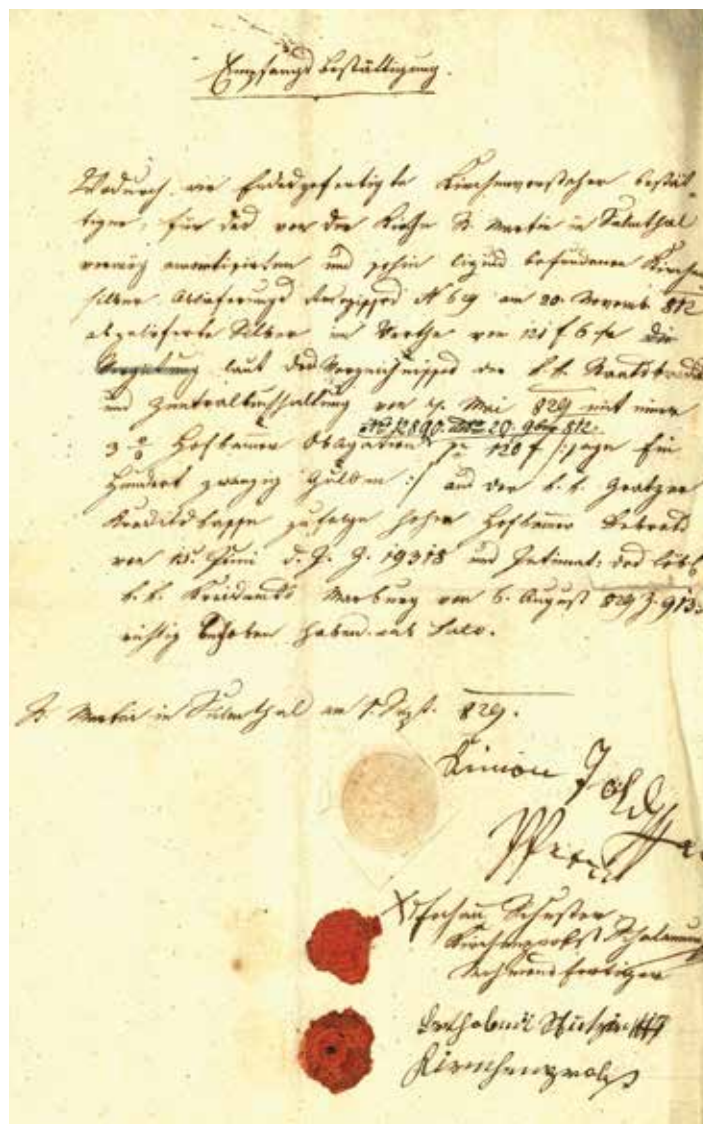 Empfangs Bestättigung.
Wodurch wir Endesgefertigte Kirchenvorsteher bestät-
tigen, für das von der Kirche St. Martin in Sulmthal
vermög amortisirten und schin liquid befundenen Kirchen
silber Ablieferungs Rezepisses N 629 am 20. Novemb. 812
abgelieferte Silber im Werthe von 121 f 6 xr die
Vergütung laut des Verzeichnisses der k. k. Staatskredits
und Zentralbuchhaltung vom 4. Mai 829 mit einer
No 12890. 20. 9ber 812.
3 % Hofkammer Obligation pr 120 f /: sage Ein
Hundert zwanzig Gulden :/ aus der k. k. Gratzer
Kreditskasse zufolge hohen Hofkammer Dekrets
vom 15. Juni d. J. Z. 19318 und Intimat: des löbl.
k. k. Kreisamts Marburg vom 6. August 829 Z. 913
richtig behoben haben.
St. Martin in Sulmthal am 1. Sept. 829.
Simon
Pfarrer
Johann Schuster
Kirchenprobst
Nahmensfertiger
Kirchenprobst